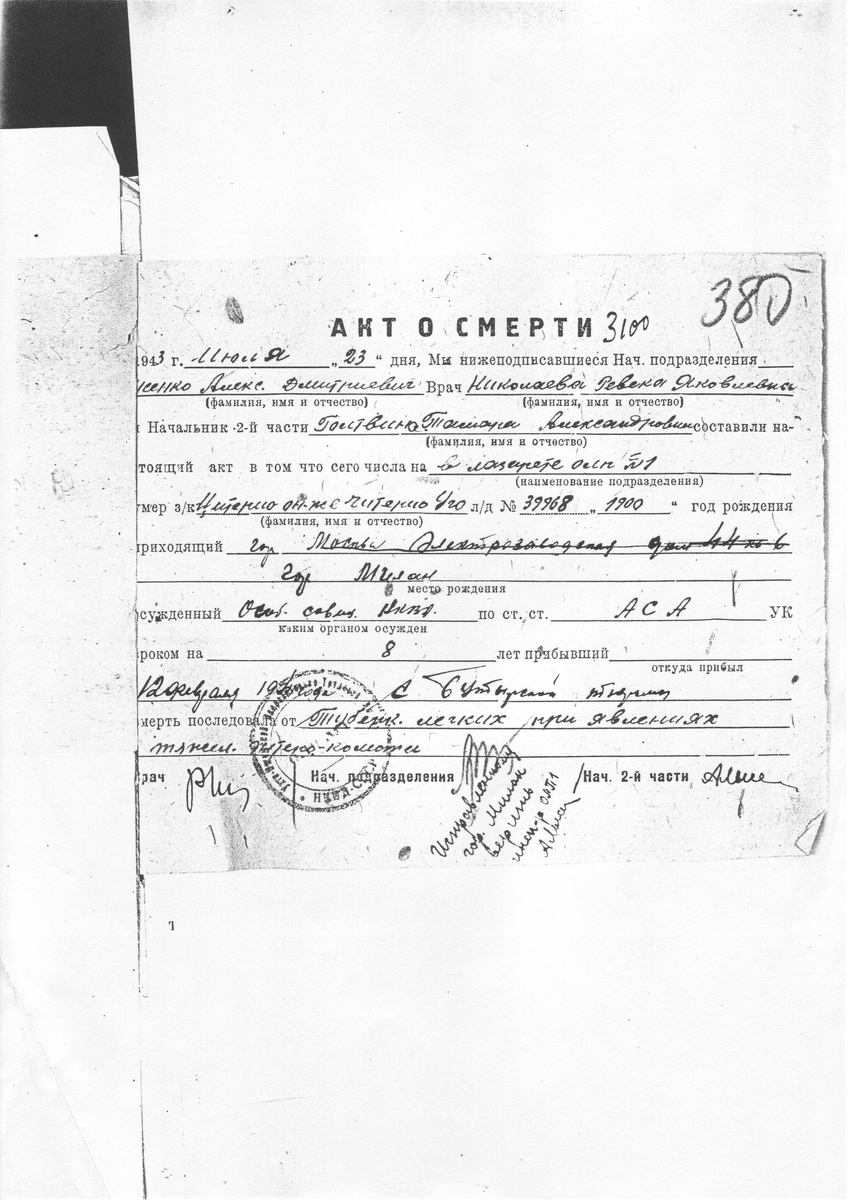 380
АКТ О СМЕРТИ 3100
1943 г. Июля „23“ дня, Мы нижеподписавшиеся Нач. подразделения
сенко Алекс. Дмитриевич Врач Николаева Ревека Яковлевна
(фамилия, имя и отчество) (фамилия, имя и отчество)
Начальник 2-й части Тамара Александровна составили на-
(фамилия, имя и отчество)
тоящий акт в том что сего числа на в лазарете олп №1
(наименование подразделения)
умер з/к Читерио он-же Читерио Уго л/д № 39968 „1900“ год рождения
(фамилия, имя и отчество)
приходящий гор Москва Электрозаводская дом 44 кв 6
Гор Милан
место рождения
осужденный Особ. совещ. НКВД. по ст. ст. АСА УК
каким органом осужден
роком на 8 лет прибывший
откуда прибыл
12 февраля года с Бутырской тюрьмы
мерть последовала от Туберк. легких при явлениях
тяжел.
рач Нач. подразделения Нач. 2-й части
НКВД-СССР
Исправленному
гор. Милан
верить
инсп-р олп1